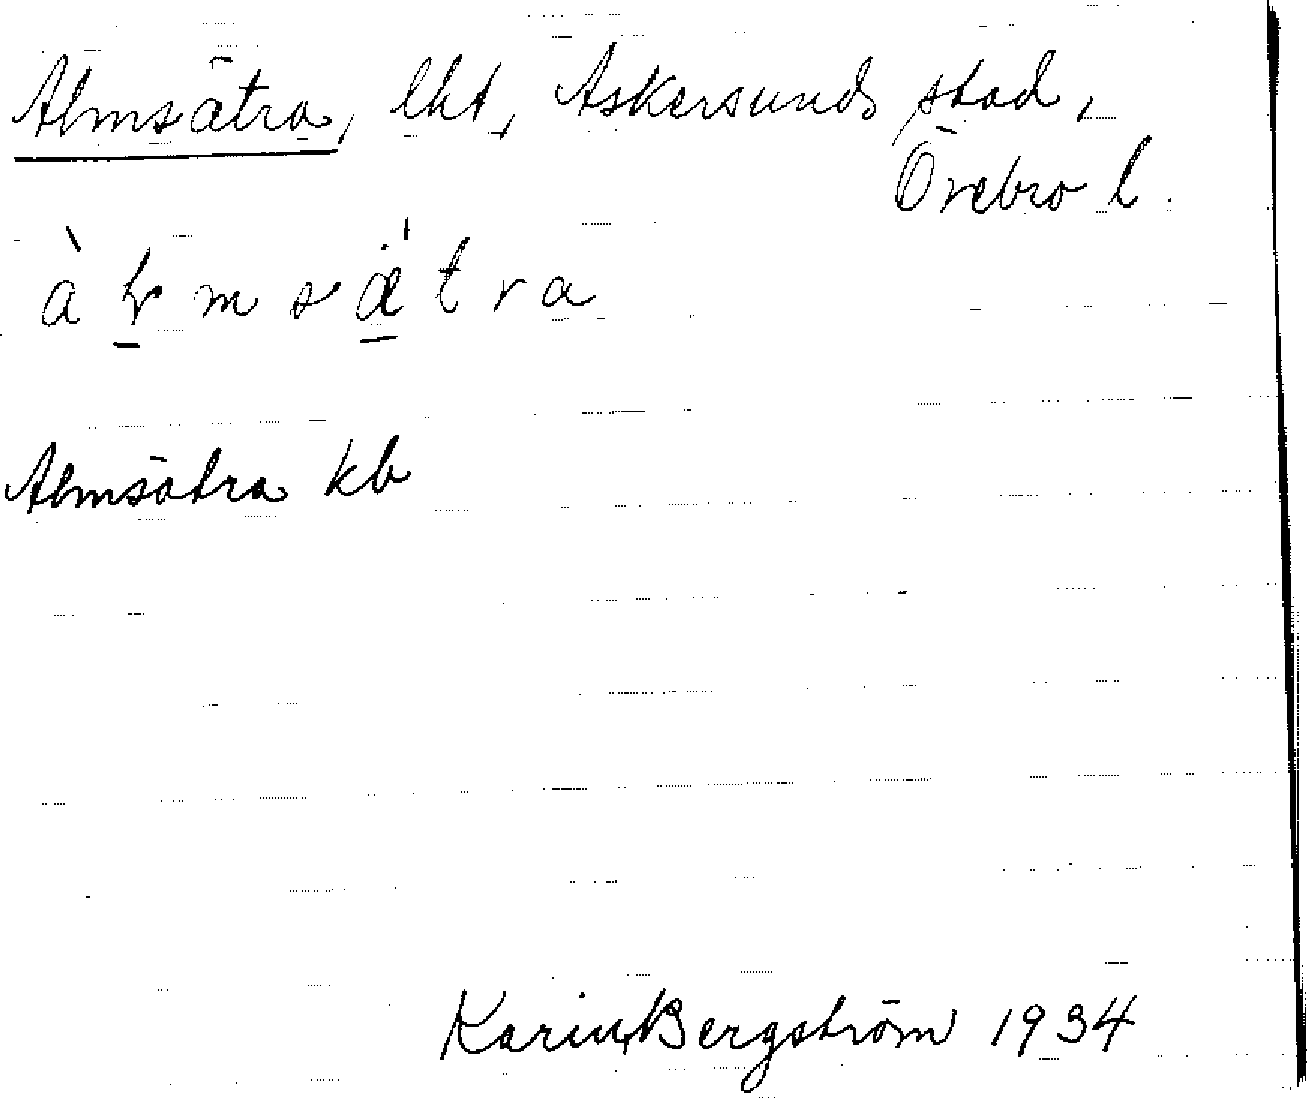 Almsätra, lht, Askersunds stad,
Örebro l.
àḻmsǽ̠tra
Almsätra kb
Karin Bergström 1934